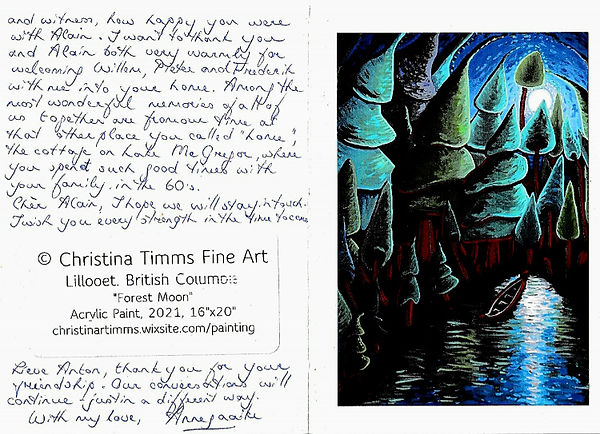 and witness, how happy you were
with Alain. I want to thank you
and Alain both very warmly for
welcoming Willem, Pieter and Frederik
with me into your home. Among the
most wonderful memories of all of
us together are from our time at
that other place you called "home",
the cottage on Lake McGregor, where
you spent such good times with
your family in the 60's.
Cher Alain, I hope we will stay in touch.
I wish you every strength in the time to come
© Christina Timms Fine Art
Lillooet, British Columbia
"Forest Moon"
Acrylic Paint, 2021, 16"x20"
christinartimms.wixsite.com/painting
Lieve Anton, thank you for your
friendship. Our conversations will
continue - just in a different way.
With my love,